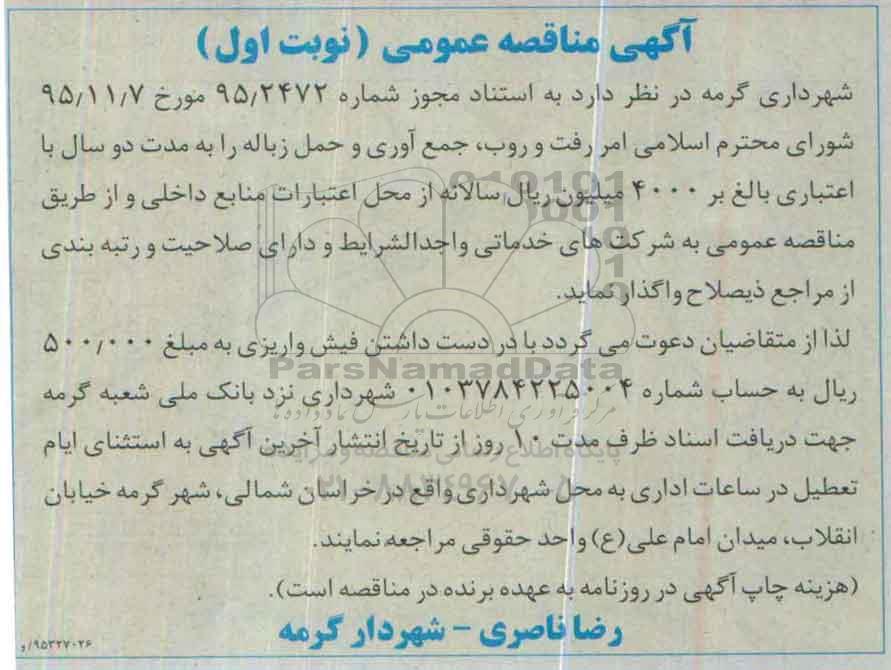 آگهی مناقصه عمومی (نوبت اول)
شهرداری گرمه در نظر دارد به استناد مجوز شماره ۹۵/۲۴۷۲ مورخ ۹۵/۱۱/۷
شورای محترم اسلامی امر رفت و روب، جمع آوری و حمل زباله را به مدت دو سال با
اعتباری بالغ بر ۴۰۰۰ میلیون ریال سالانه از محل اعتبارات منابع داخلی و از طریق
مناقصه عمومی به شرکت های خدماتی واجدالشرایط و دارای صلاحیت و رتبه بندی
از مراجع ذیصلاح واگذار نماید.
لذا از متقاضیان دعوت می گردد با در دست داشتن فیش واریزی به مبلغ ۵۰۰/۰۰۰
ریال به حساب شماره ۰۱۰۳۷۸۴۲۲۵۰۰۴ شهرداری نزد بانک ملی شعبه گرمه
جهت دریافت اسناد ظرف مدت ۱۰ روز از تاریخ انتشار آخرین آگهی به استثنای ایام
تعطیل در ساعات اداری به محل شهرداری واقع در خراسان شمالی، شهر گرمه خیابان
انقلاب، میدان امام علی(ع) واحد حقوقی مراجعه نمایند.
(هزینه چاپ آگهی در روزنامه به عهده برنده در مناقصه است).
رضا ناصری - شهردار گرمه
۹۵۳۲۷۰۲۶/و
ParsNamadData